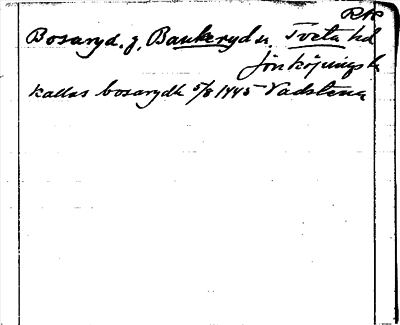 RAP
Bosaryd. g. Bankeryd sn. Tveta hd
Jönköpings l.
kallas bosarydh 5/8 1445 Vadstena